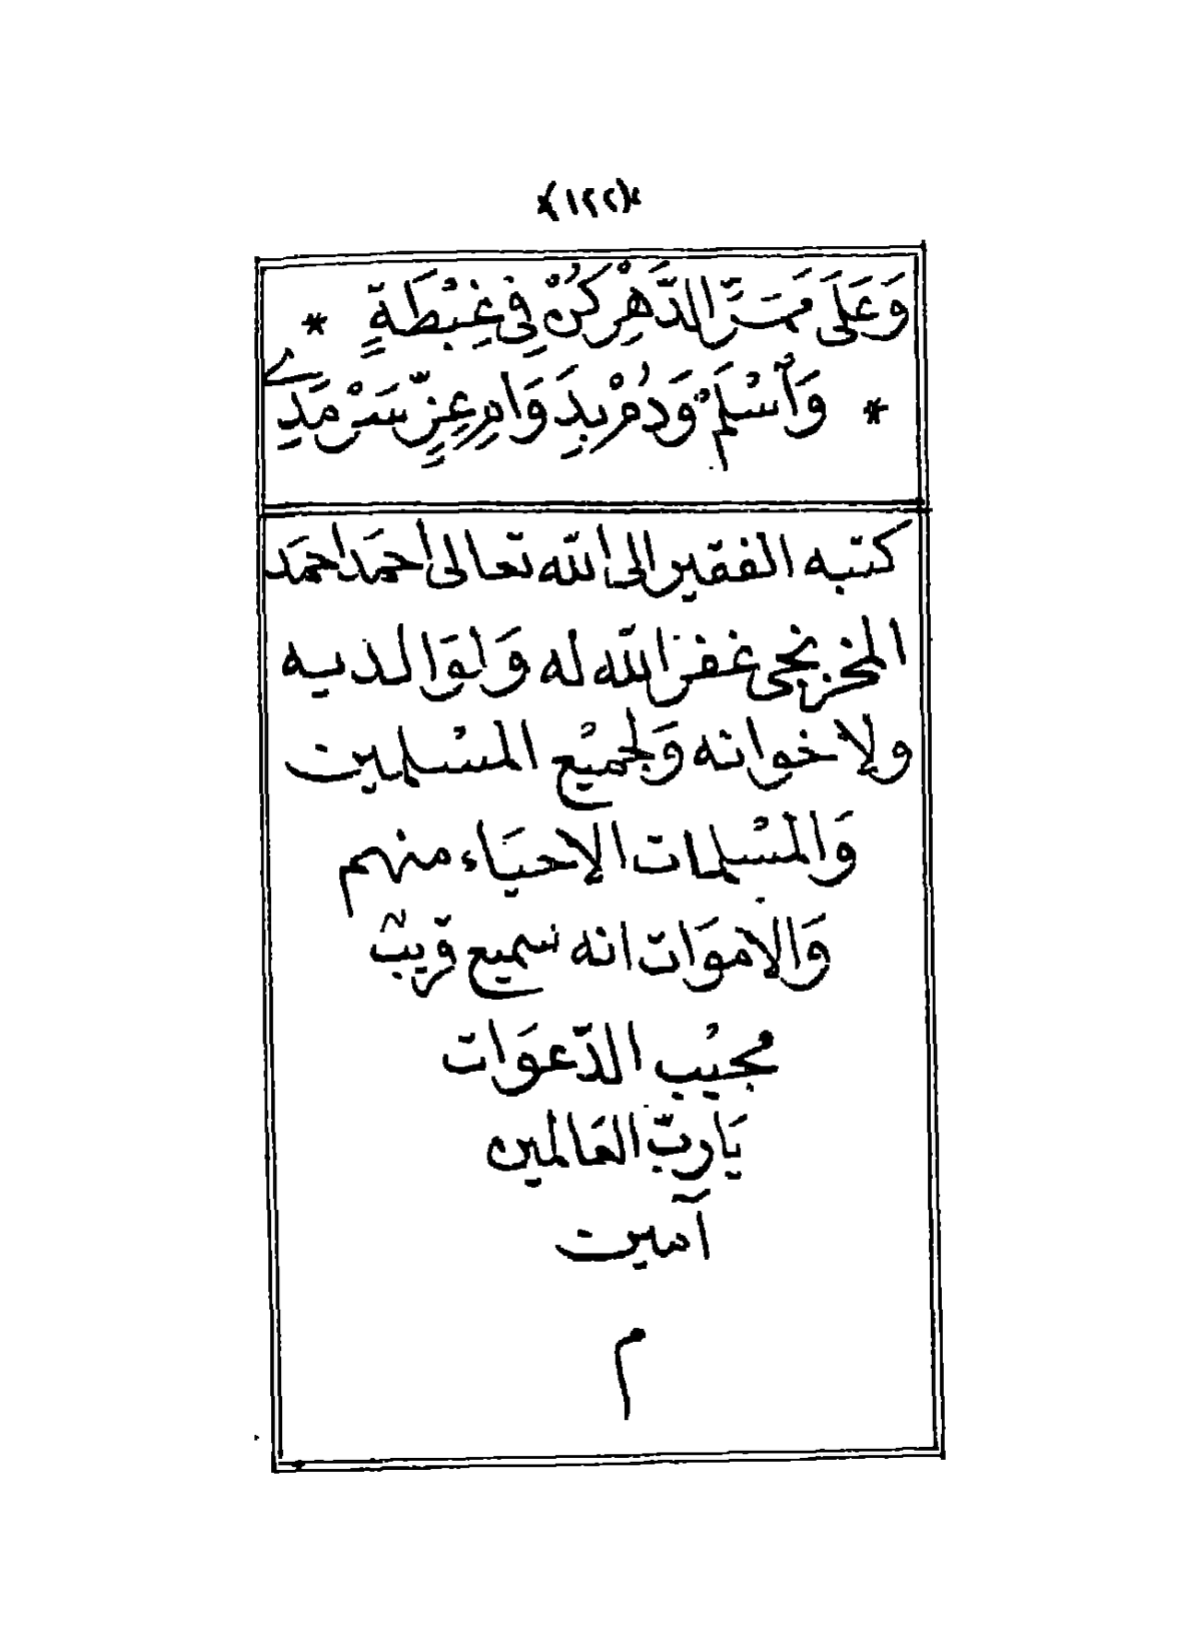 ﴿١٢٢﴾
وَعَلَى مَمَرِّ الدَّهْرِ كُنْ فِى غِبْطَةٍ *
* وَٱسْلَمْ وَدُمْ بِدَوَامِ عِزٍّ سَرْمَدِے
كتبه الفقير إلى الله تعالى أحمَد أحمَد
المخزنجى غفر الله له وَلوَالديه
ولإخوانه وَلجميْع المسْلمين
وَالمسْلمات الإحيَاء منهم
وَالاموَات انه سميع قريبٌ
مُجيْب الدّعوَات
يَا ربّ العَالمين
آمين
م